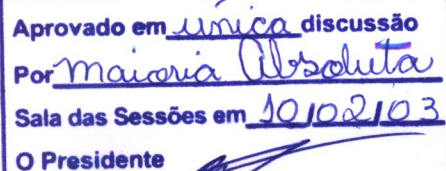 Aprovado em unica discussão
Por maioria Absoluta
Sala das Sessões em 10/02/03
O Presidente